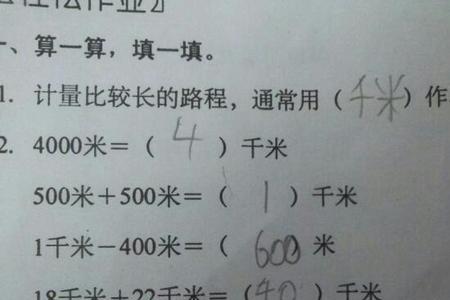 一、算一算，填一填。
1. 计量比较长的路程，通常用（千米）作
2. 4000米＝（ 4 ）千米
500米＋500米＝（ 1 ）千米
1千米－400米＝（ 600 ）米
18千米＋22千米＝（ 40 ）千米